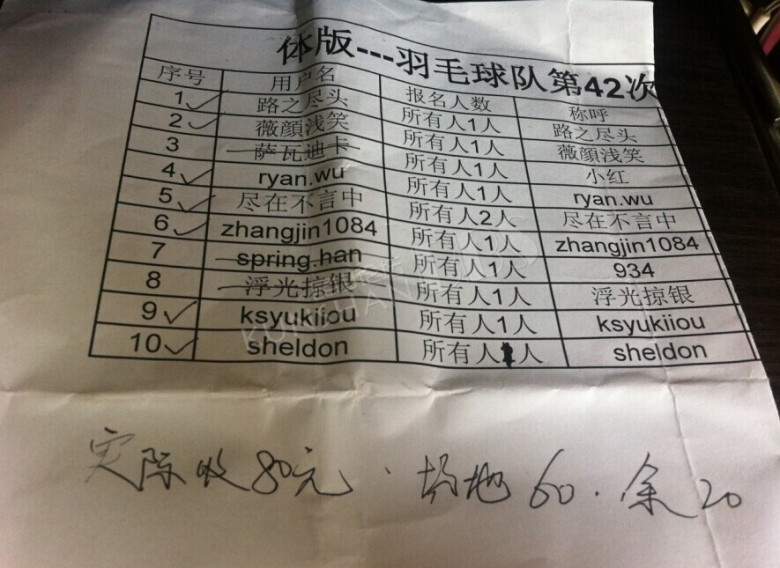 体版---羽毛球队第42次
序号 用户名 报名人数 称呼
1 路之尽头 所有人1人 路之尽头
2 薇顔浅笑 所有人1人 薇顔浅笑
3 萨瓦迪卡 所有人1人 小红
4 ryan.wu 所有人1人 ryan.wu
5 尽在不言中 所有人2人 尽在不言中
6 zhangjin1084 所有人1人 zhangjin1084
7 spring.han 所有人1人 934
8 浮光掠银 所有人1人 浮光掠银
9 ksyukiiou 所有人1人 ksyukiiou
10 sheldon 所有人人 sheldon
实际收80元.场地60.余20